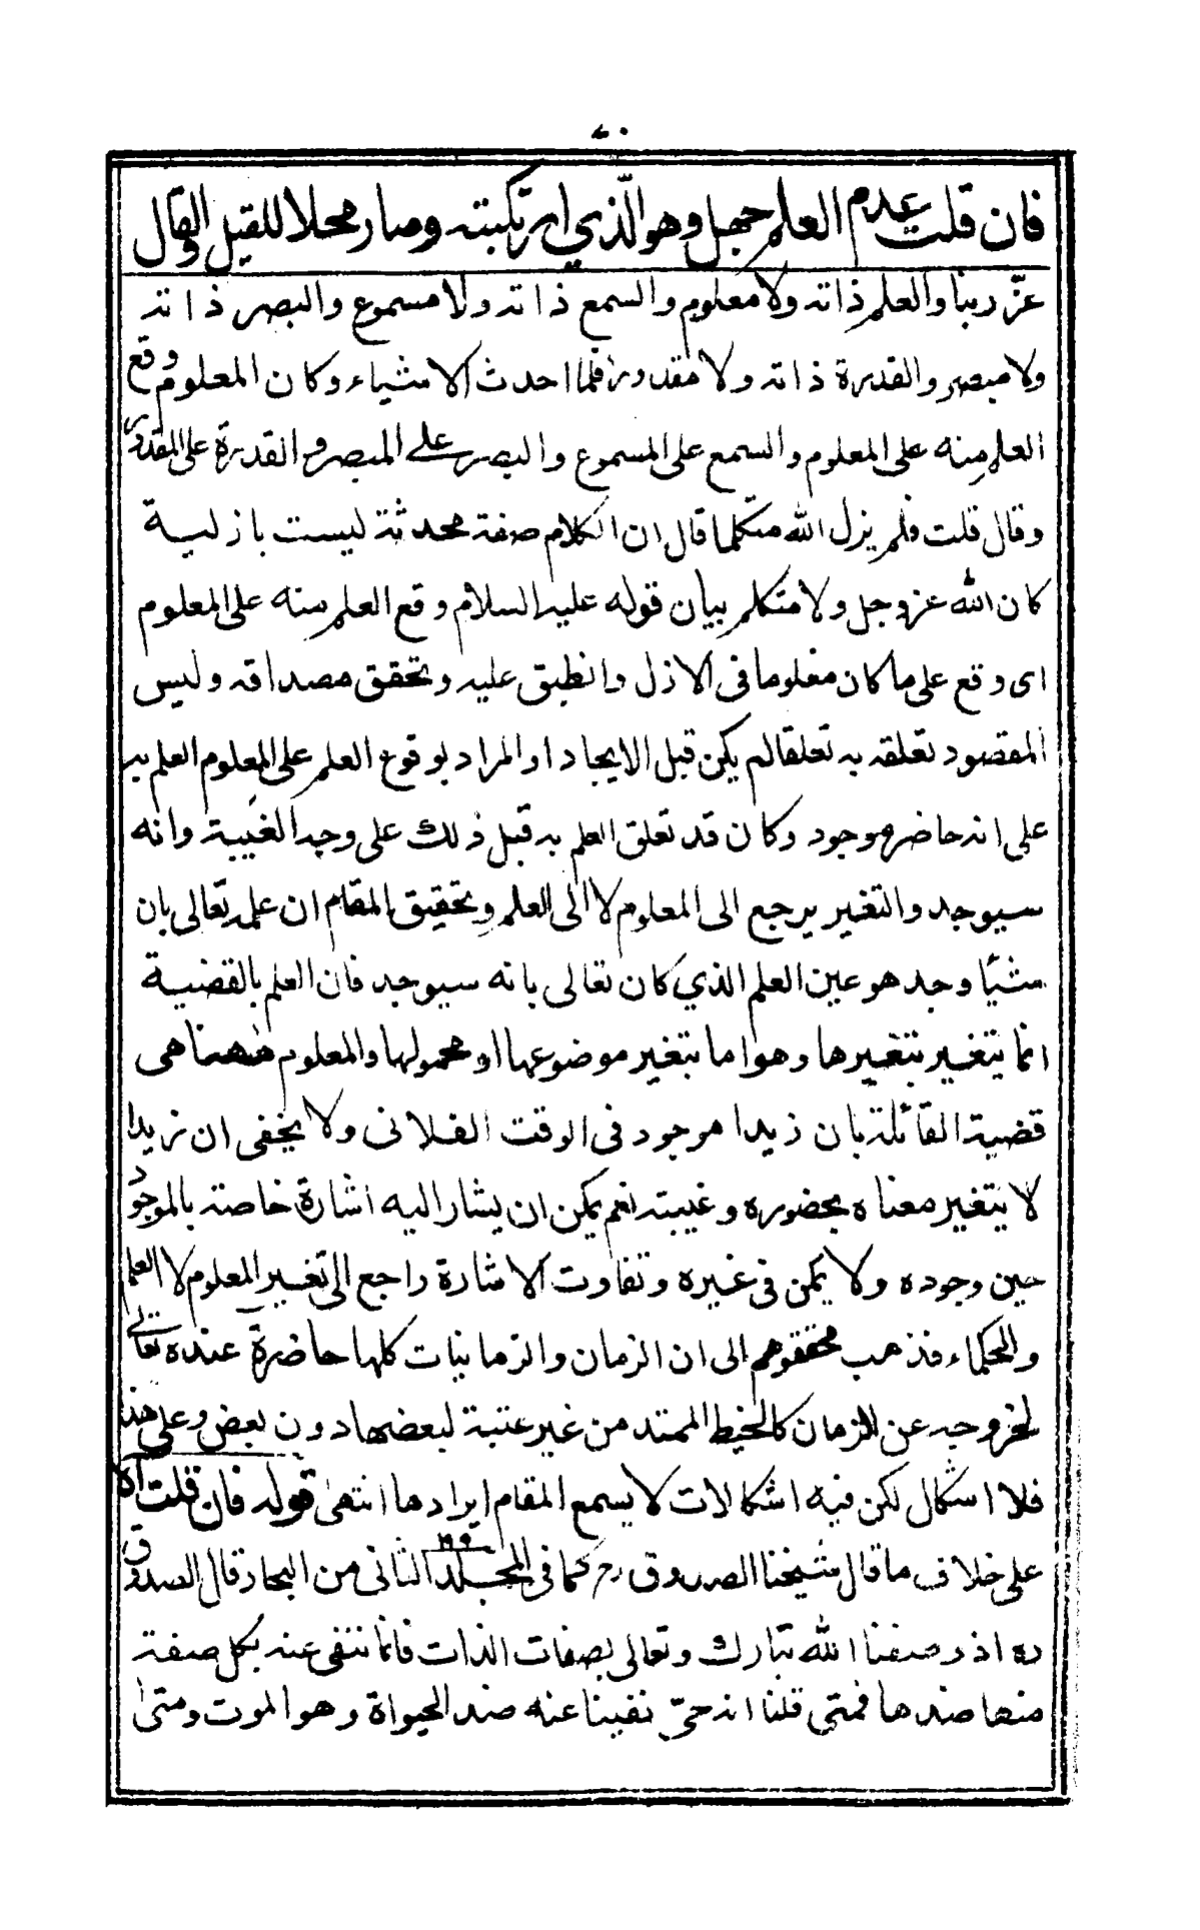 ٧٠
فان قلت عدم العلم جهل وهو الذي ارتكبته وصار محلا للقيل والقال
عزّ ربنا والعلم ذاته ولا معلوم والسمع ذاته ولا مسموع والبصر ذاته
ولا مبصر والقدرة ذاته ولا مقدور فلما احدث الاشياء وكان المعلوم وقع
العلم منه على المعلوم والسمع على المسموع والبصر على المبصر والقدرة على المقدور
وقال قلت فلم يزل الله متكلما قال ان الكلام صفة محدثة ليست بازلية
كان الله عز وجل ولا متكلم بيان قوله عليه السلام وقع العلم منه على المعلوم
اى وقع على ما كان معلوما فى الازل وانطبق عليه وتحقق مصداقه وليس
المقصود تعلقه به تعلقا لم يكن قبل الايجاد او المراد بوقوع العلم على المعلوم العلم به
على انه حاضر موجود وكان قد تعلق العلم به قبل ذلك على وجه الغيبة وانه
سيوجد والتغير يرجع الى المعلوم لا الى العلم وتحقيق المقام ان علمه تعالى بان
شيئا وجد هو عين العلم الذي كان تعالى بانه سيوجد فان العلم بالقضية
انما يتغير بتغيرها وهو اما بتغير موضوعها او محمولها والمعلوم ههنا هى
قضية القائلة بان زيدا موجود فى الوقت الفلانى ولا يخفى ان زيدا
لا يتغير معناه بحضوره وغيبته نعم يمكن ان يشار اليه اشارة خاصة بالموجود
حين وجوده ولا يمكن فى غيره وتفاوت الاشارة راجع الى تغير المعلوم لا العلم
والحكماء فذهب محققوهم الى ان الزمان والزمانيات كلها حاضرة عنده تعالى
لخروجه عن الزمان كالخيط الممتد من غير غيبة لبعضها دون بعض وعلى هذا
فلا اشكال لكن فيه اشكالات لا يسمع المقام ايرادها انتهى قوله فان قلت آه
على خلاف ما قال شيخنا الصدوق رح كما فى المجلد الثانى من البحار قال الصدوق
ره اذ وصفنا الله تبارك وتعالى بصفات الذات فانما ننفى عنه بكل صفة
منها ضدها فمتى قلنا انه حيّ نفينا عنه ضد الحيواة وهو الموت ومتى